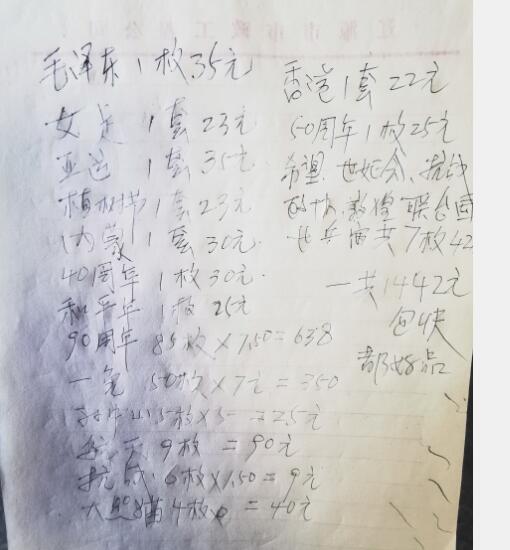 毛泽东1枚35元
女足 1套23元
亚运 1套35元
植树节1套23元
内蒙 1套30元
40周年 1枚30元
和平年 1枚25元
90周年 85枚×7.50=638
一先 50枚×7元=350
5枚×5=25元
9枚=90元
抗战 6枚×1.50=9元
大熊猫4枚 =40元
香港1套22元
50周年1枚25元
希望、世妇会、抗战
敦煌 联合国
共7枚42
一共1442元
包快
都好品